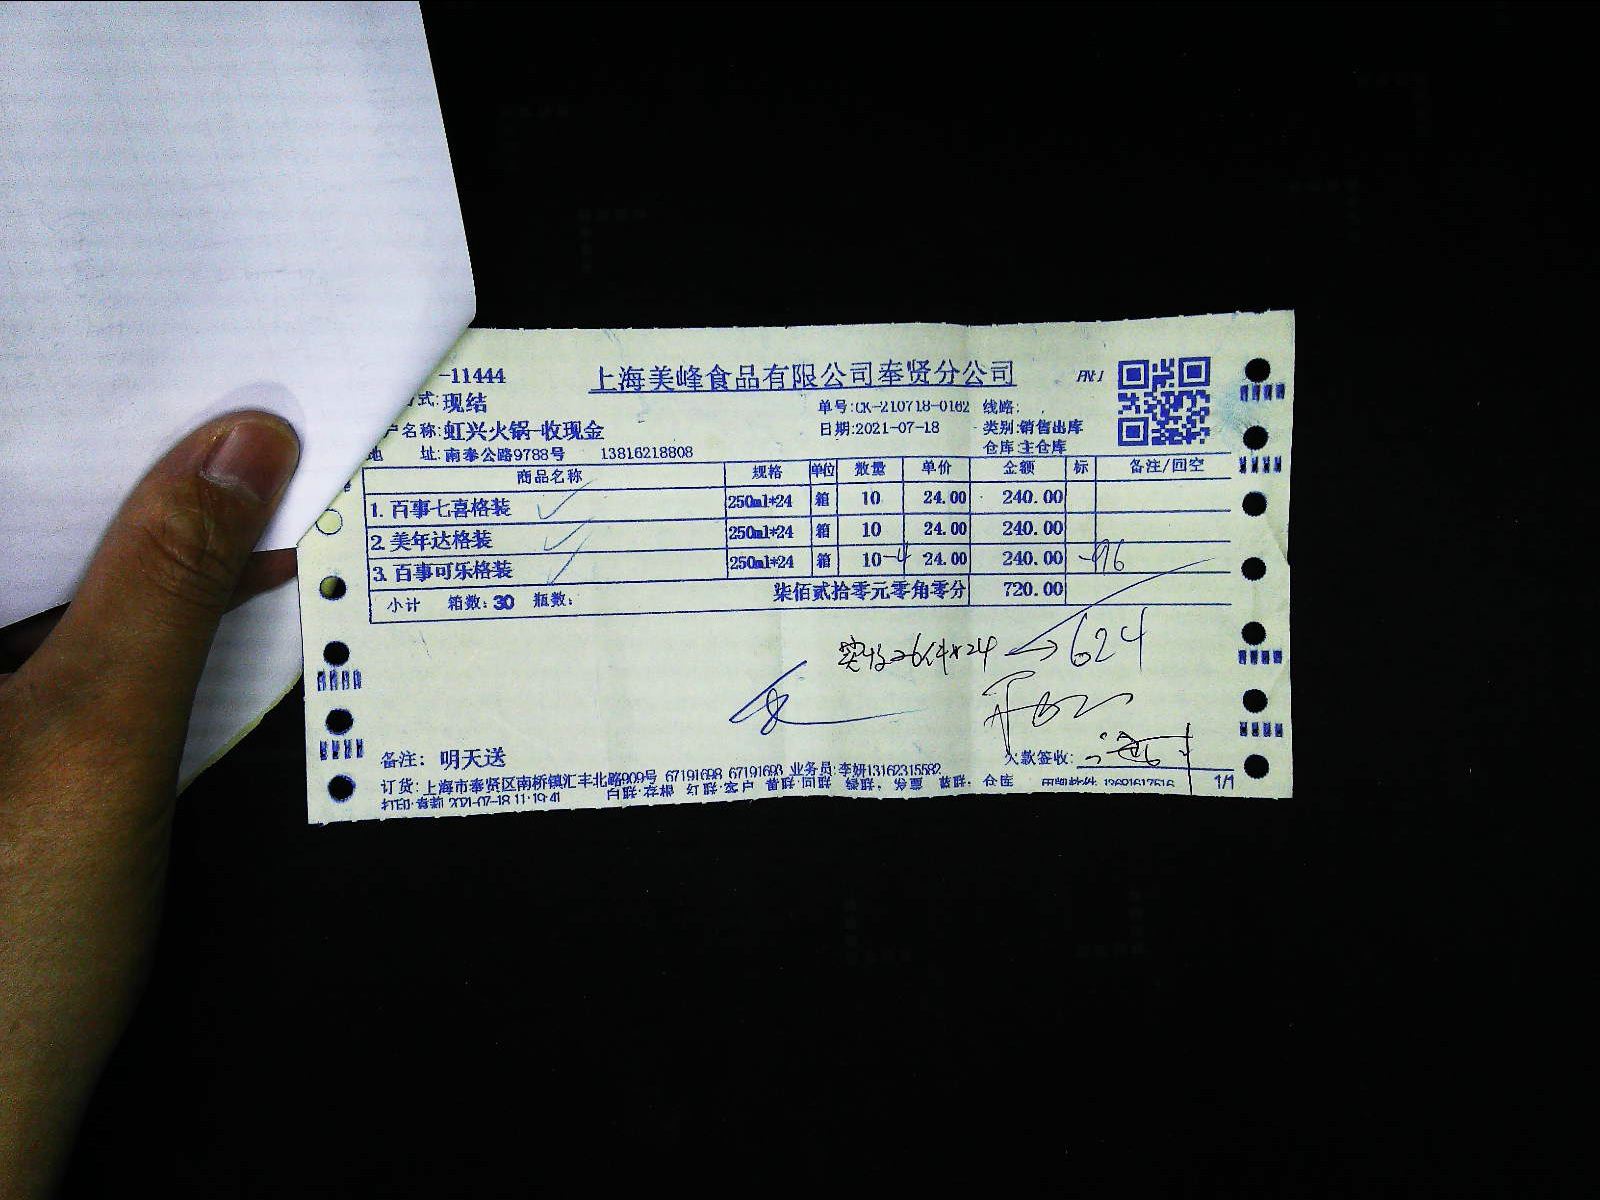 -11444 上海美峰食品有限公司奉贤分公司
式:现结 单号:CK-210718-0162 线路:
户名称:虹兴火锅-收现金 日期:2021-07-18 类别:销售出库
地 址:南奉公路9788号 13816218808 仓库:主仓库
商品名称 规格 单位 数量 单价 金额 标 备注/回空
1. 百事七喜格装 250ml*24 箱 10 24.00 240.00
2. 美年达格装 250ml*24 箱 10 24.00 240.00
3. 百事可乐格装 250ml*24 箱 10-4 24.00 240.00 -96
小计 箱数: 30 瓶数: 柒佰贰拾零元零角零分 720.00
624
备注: 明天送 欠款签收:
订货:上海市奉贤区南桥镇汇丰北路909号 67191698 67191693 业务员:李妍13162315582
2021-07-18 11:19:41 白联:存根 红联:客户 黄联:回联 绿联: 发票 蓝联: 仓库 13691617516 1/1